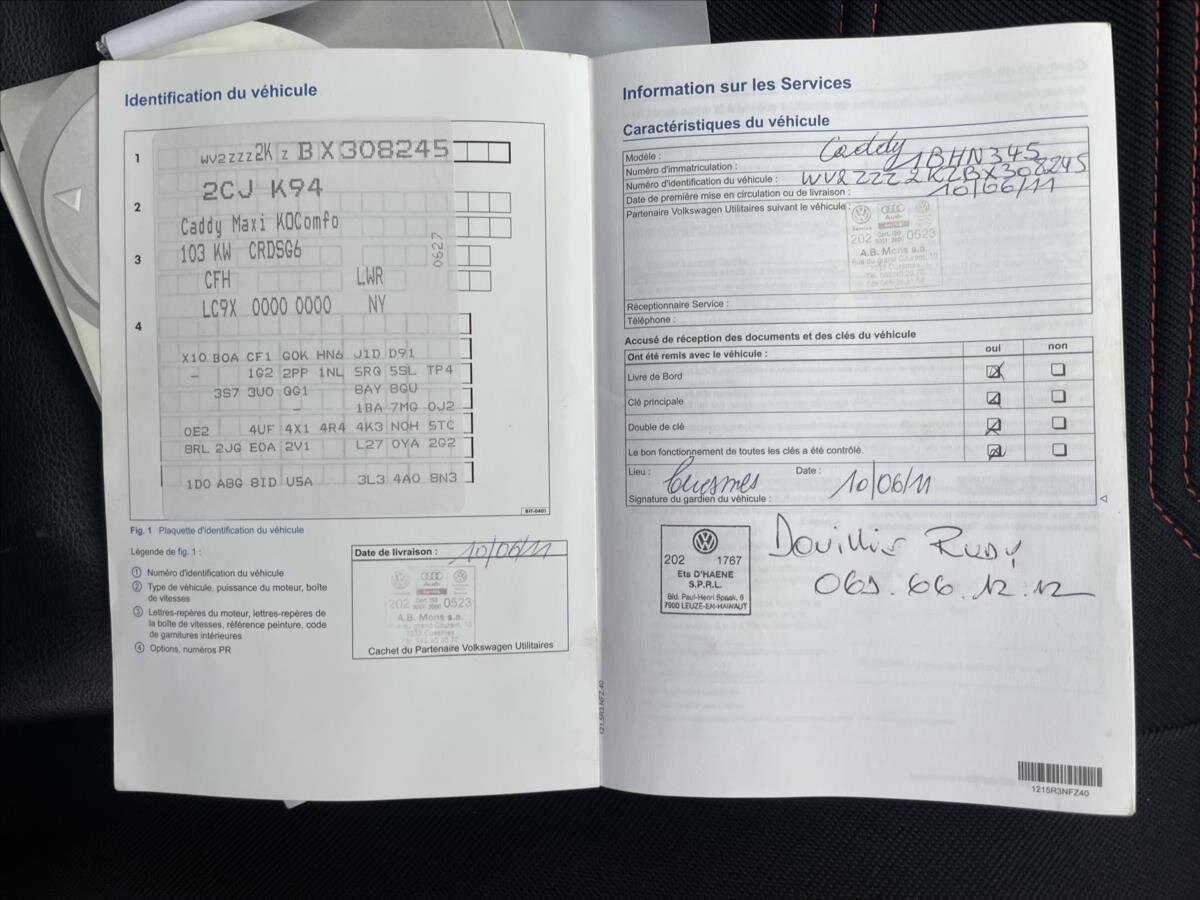 Identification du véhicule
1
WV2ZZZ2K Z BX308245
2CJ K94
2
Caddy Maxi KOComfo
3
103 KW CRDSG6
0627
CFH LWR
LC9X 0000 0000 NY
4
X10 B0A CF1 G0K HN6 J1D D91
- 1G2 2PP 1NL 5RQ 5SL TP4
3S7 3U0 QG1 BAY 8GU
- 1BA 7MG 0J2
0E2 4UF 4X1 4R4 4K3 N0H 5TC
8RL 2JG E0A 2V1 L27 0YA 2G2
1D0 A8G 8ID U5A 3L3 4A0 8N3
B1T-0401
Fig. 1 Plaquette d'identification du véhicule
Légende de fig. 1 :
1 Numéro d'identification du véhicule
2 Type de véhicule, puissance du moteur, boîte
de vitesses
3 Lettres-repères du moteur, lettres-repères de
la boîte de vitesses, référence peinture, code
de garnitures intérieures
4 Options, numéros PR
Date de livraison : 10/06/11
Audi
Service
202 0523
A.B. Mons s.a.
Rue du grand Courant, 10
7033 Cuesmes
Cachet du Partenaire Volkswagen Utilitaires
121.5R3.NFZ.40
Information sur les Services
Caractéristiques du véhicule
Modèle : Caddy
Numéro d'immatriculation : 1BHN345
Numéro d'identification du véhicule : WV2ZZZ2KZBX308245
Date de première mise en circulation ou de livraison : 10/06/11
Partenaire Volkswagen Utilitaires suivant le véhicule :
Service Audi
202 Cert. ISO 0523
A.B. Mons s.a.
Rue du grand Courant, 10
7033 Cuesmes
Réceptionnaire Service :
Téléphone :
Accusé de réception des documents et des clés du véhicule
Ont été remis avec le véhicule : oui non
Livre de Bord
Clé principale
Double de clé
Le bon fonctionnement de toutes les clés a été contrôlé.
Lieu : Cuesmes Date : 10/06/11
Signature du gardien du véhicule :
202 1767
Ets D'HAENE
S.P.R.L.
Bld. Paul-Henri Spaak, 6
7900 LEUZE-EN-HAINAUT
Douillis Rudy
069.66.12.12
1215R3NFZ40